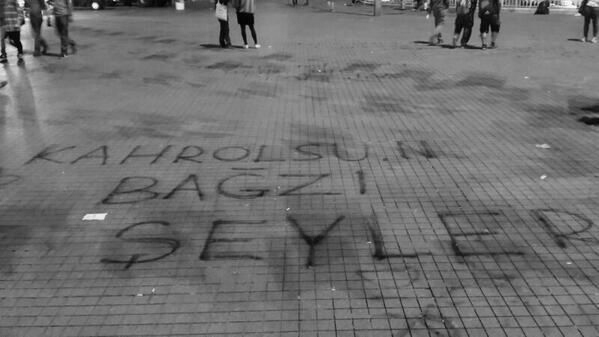 KAHROLSUN
BAĞZI
ŞEYLER